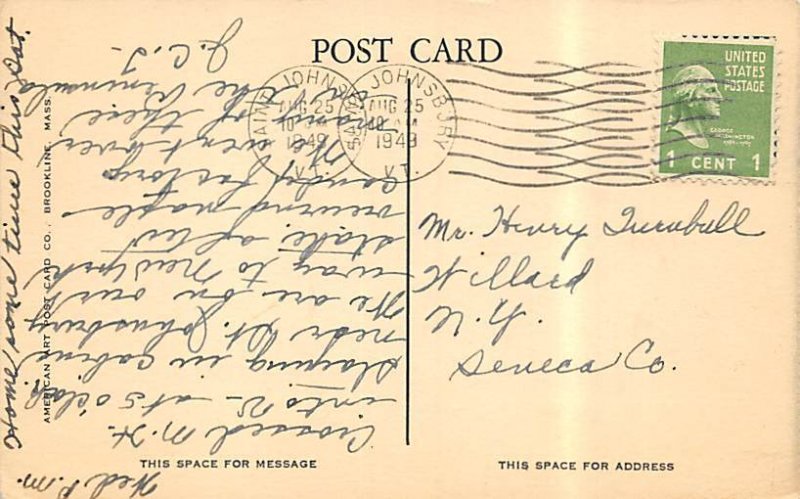 POST CARD
SAINT JOHNSBURY
AUG 25
10 AM
1949
VT.
SAINT JOHNSBURY
AUG 25
10 AM
1949
VT.
UNITED
STATES
POSTAGE
GEORGE
WASHINGTON
1 CENT 1
Mr. Henry Turnbull
Willard
N.Y.
Seneca Co.
Wed. P.M.
Crossed N.H.
into Vt - at 5 o'clock
staying in cabins
near St. Johnsbury
We are on our
way to New York
state, after
viewing maple
candy factory
We went over
the Peninsula
J.C.T.
Home some time this Sat.
AMERICAN ART POST CARD CO., BROOKLINE, MASS.
THIS SPACE FOR MESSAGE
THIS SPACE FOR ADDRESS